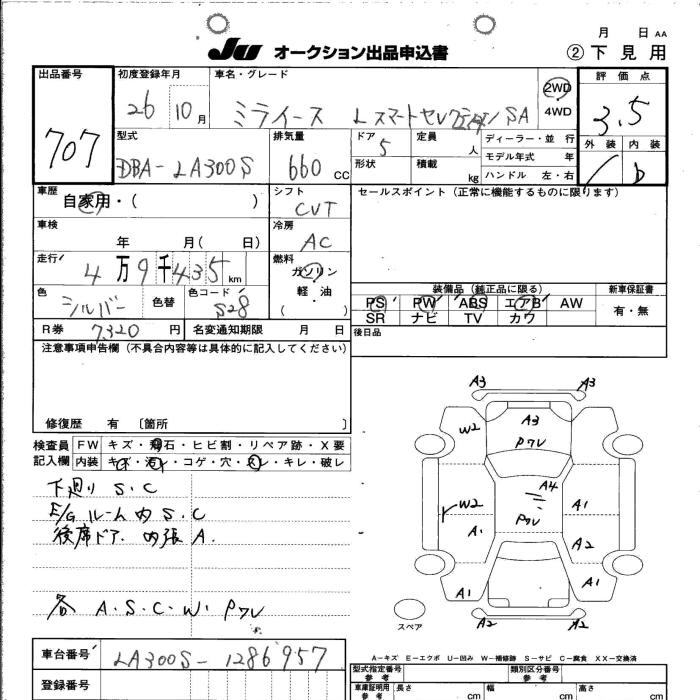 月 日 AA
JU オークション出品申込書 ② 下見用
出品番号 707
初度登録年月 26 10 月
車名・グレード ミライース L スマートセレクション SA
2WD 4WD
評価点 3.5
外装 内装 b
型式 DBA-LA300S
排気量 660 CC
ドア 5 形状
定員 人 積載 kg
ディーラー・並行
モデル年式 年
ハンドル 左・右
車歴 自家用・( )
シフト CVT
セールスポイント (正常に機能するものに限ります)
車検 年 月( 日)
冷房 AC
走行 4万9千435 km
燃料 ガソリン 軽・油 ( )
色 シルバー 色替 色コード S28
装備品 (純正品に限る) 新車保証書
PS PW ABS エアB AW 有・無
SR ナビ TV カワ
R券 7320 円 名変通知期限 月 日
後日品
注意事項申告欄 (不具合内容等は具体的に記入してください)
修復歴 有 〔箇所 〕
検査員記入欄
FW キズ・飛石・ヒビ割・リペア跡・X要
内装 キズ・汚レ・コゲ・穴・スレ・キレ・破レ
下廻り S.C
E/Gルーム内 S.C
後席ドア 内張 A.
各 A.S.C.W. Pワレ
A3 A3
W2 A3
Pワレ
A4
W2 Pワレ A1
A1 A2
A1 A1
A2 A2
スペア
A-キズ E-エクボ U-凹み W-補修跡 S-サビ C-腐食 XX-交換済
車台番号 LA300S-1286957
登録番号
型式指定番号 参考 類別区分番号 参考
車庫証明用 参考 長さ cm 幅 cm 高さ cm